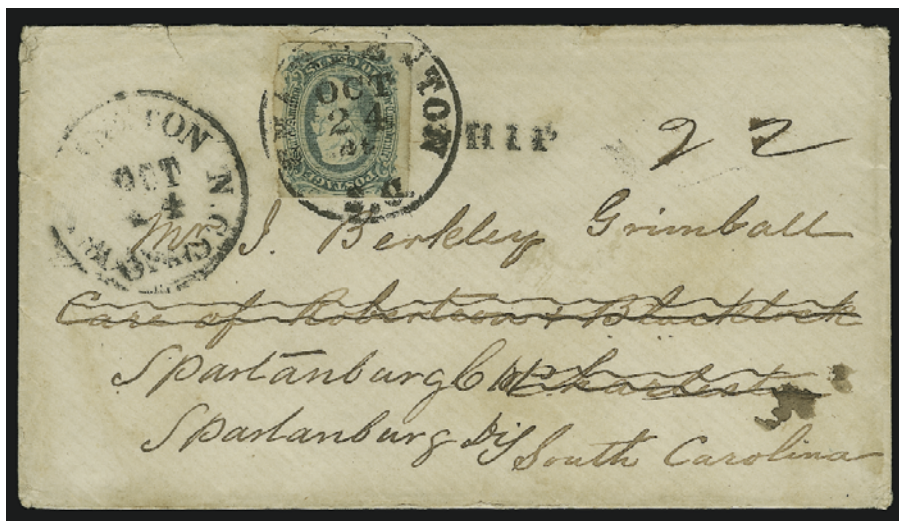 OCT
24
TON N.C.
OCT
HIP
2 2
Mrs J. Berkley Grimball
Care of Robertson & Blacklock
Spartanburg C H Charleston
Spartanburg Dis South Carolina
POSTAGE